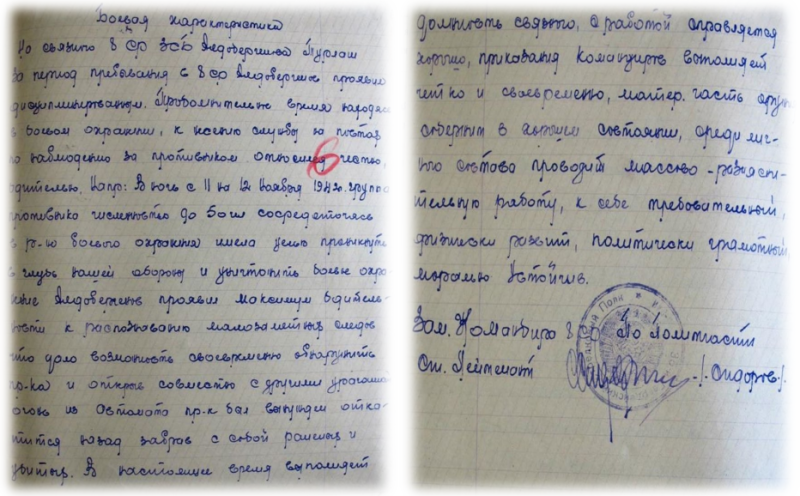 Боевая характеристика
На связного 8 СР
за период пребывания в 8 СР проявил
дисциплинированным. Продолжительное время находясь
в боевом охранении, к несению службы на постах
по наблюдению за противником относился честно,
бдительно. Напр: В ночь с 11 на 12 ноября 1942 г. группа
противника численностью до 50 чел сосредоточась
в р-не боевого охранения имела целью проникнуть
в глубь нашей обороны и уничтожить боевое охра-
нение проявил максимум бдитель-
ности к распознаванию малозаметных следов
что дало возможность своевременно обнаружить
пр-ка и открыв совместно с другими
огонь из автомата пр-к был вынужден отка-
титься назад забрав с собой раненых и
убитых. В настоящее время выполняет
должность связного, с работой справляется
хорошо, приказания командиров выполняет
четко и своевременно, матер. часть оружия
содержит в хорошем состоянии, среди лич-
ного состава проводит массово-разъясни-
тельную работу, к себе требовательный,
физически развит, политически грамотный,
морально устойчив.
Зам. Командира 8 СР По политчасти
Ст. Лейтенант /-Сидоров-/
6